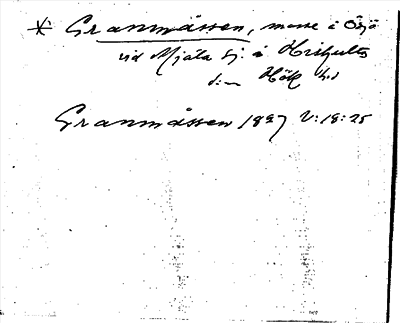 * Granmåssen, mosse i Ösjö
vid Mjäla sj. i Hishults
s:n Hök hd
Granmåssen 1827 V:18:25